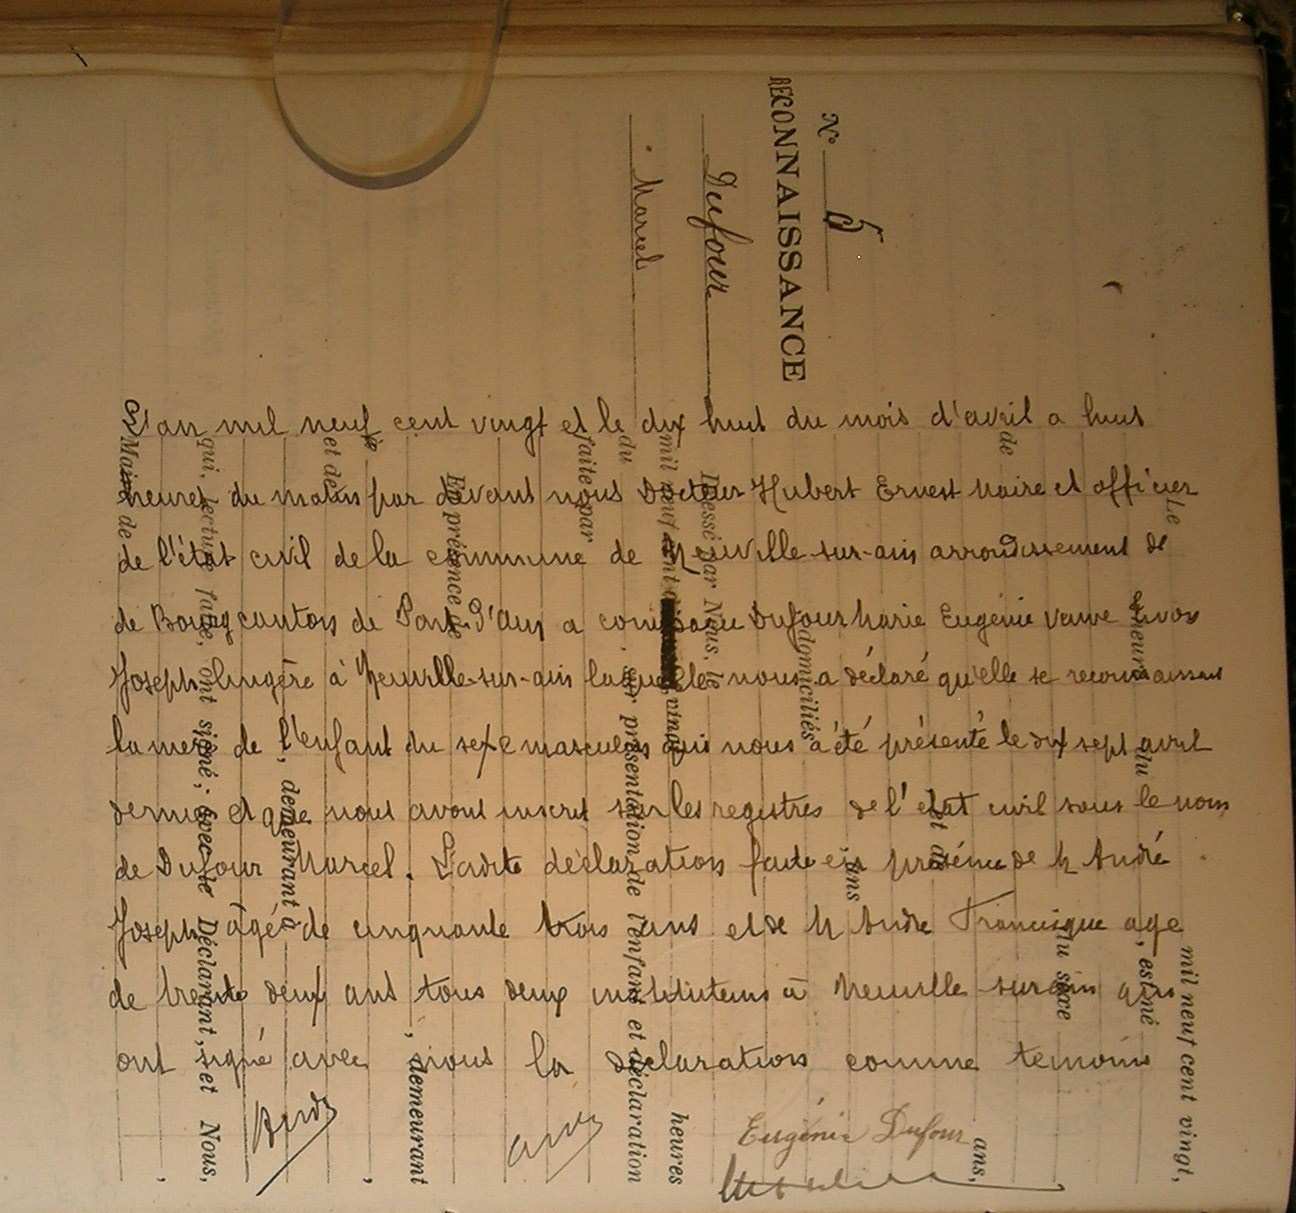 N° 5
RECONNAISSANCE
Dufour
Marcel
L'an mil neuf cent vingt et le dix huit du mois d'avril a huit
heures du matin par devant nous Docteur Hubert Ernest maire et officier
de l'état civil de la commune de Neuville-sur-ain arrondissement de
de Bourg canton de Pont-d'Ain a comparue Dufour Marie Eugénie veuve
Joseph lingère à Neuville-sur-ain laquelle nous a déclaré qu'elle se reconnaissait
la mère de l'enfant du sexe masculin qui nous a été présenté le dix sept avril
dernier et que nous avons inscrit sur les registres de l'état civil sous le nom
de Dufour Marcel. Ladite déclaration faite en présence de M André
Joseph âgé de cinquante trois ans et de M André Francisque agé
de trente deux ans tous deux instituteurs à Neuville-sur-ain qui
ont signé avec nous la déclaration comme témoins
Eugénie Dufour
Le
mil neuf cent vingt,
heures
du
, est né
du sexe
de
ans,
et de
, ans
domiciliés
Dressé par Nous, le
mil neuf cent vingt
heures
du
, sur présentation de l'enfant et déclaration
faite par
En présence de
, demeurant
et de
, demeurant à
qui, lecture faite, ont signé, avec le Déclarant, et Nous,
Maire de